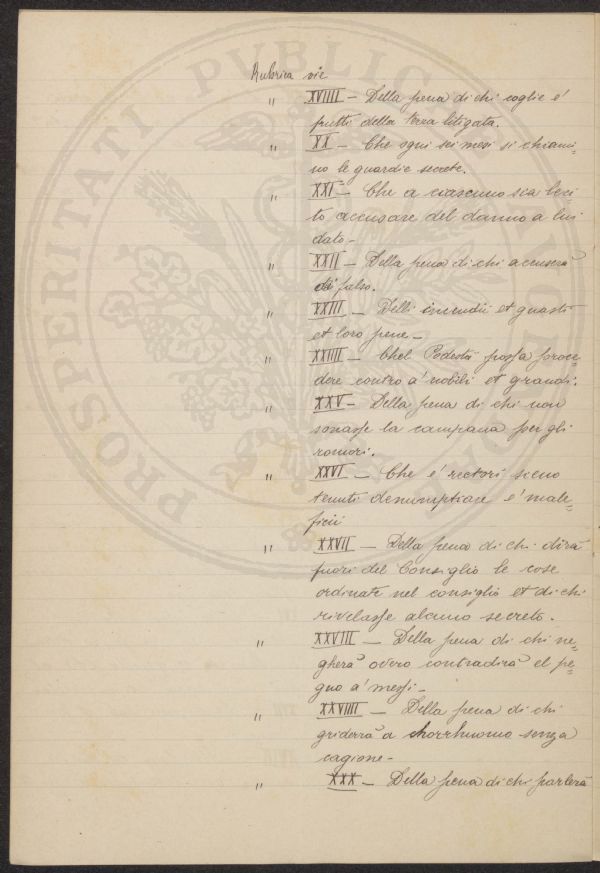 Rubrica vie
" XVIIII — Della pena di chi coglie e'
frutti della terra litigata.
" XX — Che ogni sei mesi si chiami=
no le guardie secrete.
" XXI — Che a ciascuno sia leci=
to accusare del danno a lui
dato —
" XXII — Della pena di chi accuserà
di falso.
" XXIII — Delli incendii et guasti
et loro pene —
" XXIIII — Chel Podestà possa proce=
dere contro a' nobili et grandi.
" XXV — Della pena di chi non
sonasse la campana per gli
romori.
" XXVI — Che e' rectori sieno
tenuti denumptiare e' male=
ficii
" XXVII — Della pena di chi dirà
fuori del Consiglio le cose
ordinate nel consiglio et di chi
rivelasse alcuno secreto.
" XXVIII — Della pena di chi ne=
gherà overo contradirà el pe=
gno a' messi —
" XXVIIII — Della pena di chi
griderrà a chorrhuomo senza
cagione —
" XXX — Della pena di chi parlerà
PROSPERITATI PVBLICAE